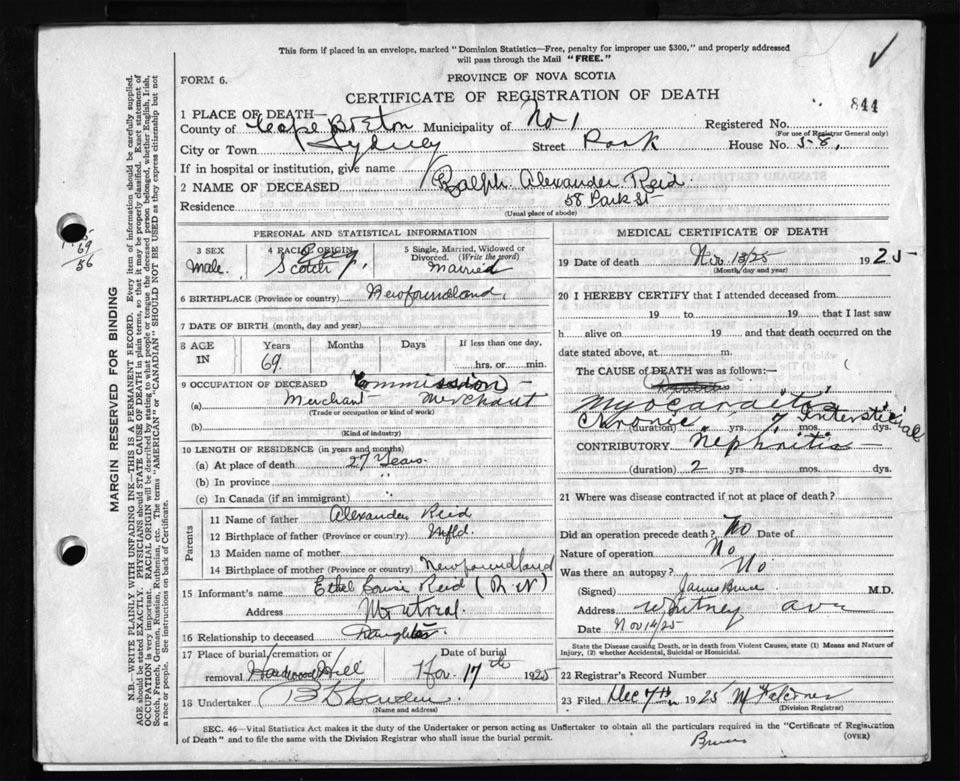 This form if placed in an envelope, marked "Dominion Statistics—Free, penalty for improper use $300," and properly addressed
will pass through the Mail "FREE."
FORM 6.
PROVINCE OF NOVA SCOTIA
CERTIFICATE OF REGISTRATION OF DEATH
844
1 PLACE OF DEATH—
County of Cape Breton Municipality of No 1 Registered No.
(For use of Registrar General only)
City or Town Sydney Street Park House No. 58,
If in hospital or institution, give name
2 NAME OF DECEASED Ralph Alexander Reid
Residence 58 Park St
(Usual place of abode)
PERSONAL AND STATISTICAL INFORMATION
3 SEX
Male.
4 RACIAL ORIGIN
Scotch
5 Single, Married, Widowed or
Divorced. (Write the word)
Married
6 BIRTHPLACE (Province or country) Newfoundland.
7 DATE OF BIRTH (month, day and year)
8 AGE IN
Years Months Days If less than one day,
69. hrs. or min.
9 OCCUPATION OF DECEASED Commission -
(a) Merchant - Merchant
(Trade or occupation or kind of work)
(b)
(Kind of industry)
10 LENGTH OF RESIDENCE (in years and months)
(a) At place of death 27 Years.
(b) In province "
(c) In Canada (if an immigrant)
Parents
11 Name of father Alexander Reid
12 Birthplace of father (Province or country) Nfld.
13 Maiden name of mother
14 Birthplace of mother (Province or country) Newfoundland
15 Informant's name Ethel Reid (R N)
Address Montreal.
16 Relationship to deceased Daughter.
17 Place of burial/cremation or Date of burial
removal Hardwood Hill Nov. 17th 1925
18 Undertaker
(Name and address)
MEDICAL CERTIFICATE OF DEATH
19 Date of death Nov 13/25 1925
(Month/day and year)
20 I HEREBY CERTIFY that I attended deceased from
19 to 19 that I last saw
h alive on 19 and that death occurred on the
date stated above, at m.
The CAUSE of DEATH was as follows:—
Myocarditis
Chronic Interstitial
(duration) yrs. mos. dys.
CONTRIBUTORY Nephritis
(duration) 2 yrs. mos. dys.
21 Where was disease contracted if not at place of death?
Did an operation precede death? No Date of
Nature of operation No
Was there an autopsy? No
(Signed) James Bruce M.D.
Address Whitney ave
Date Nov 14/25
State the Disease causing Death, or in death from Violent Causes, state (1) Means and Nature of
Injury, (2) whether Accidental, Suicidal or Homicidal.
22 Registrar's Record Number
23 Filed Dec 7th 1925 M Falconer
(Division Registrar)
SEC. 46—Vital Statistics Act makes it the duty of the Undertaker or person acting as Undertaker to obtain all the particulars required in the "Certificate of Registration
of Death" and to file the same with the Division Registrar who shall issue the burial permit.
Bruce
(OVER)
69
56
MARGIN RESERVED FOR BINDING
N.B.—WRITE PLAINLY WITH UNFADING INK—THIS IS A PERMANENT RECORD. Every item of information should be carefully supplied.
AGE should be stated EXACTLY. PHYSICIANS should STATE CAUSE OF DEATH in plain terms, so that it may be properly classified. Exact statement of
OCCUPATION is very important. RACIAL ORIGIN will be described by stating to what people or tongue the deceased person belonged, whether English, Irish,
Scotch, French, German, Russian, Ruthenian, etc. The terms "AMERICAN" or "CANADIAN" SHOULD NOT BE USED as they express citizenship but not
a race or people. See instructions on back of Certificate.